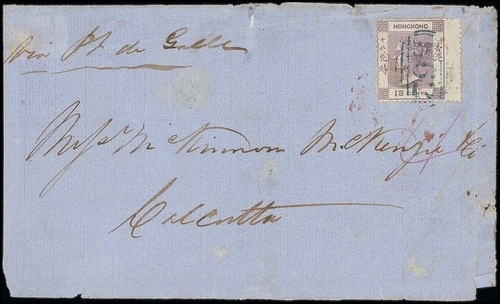 via Pt de Galle
HONGKONG
18 CENTS
Messrs McKinnon McKenzie & Co
Calcutta